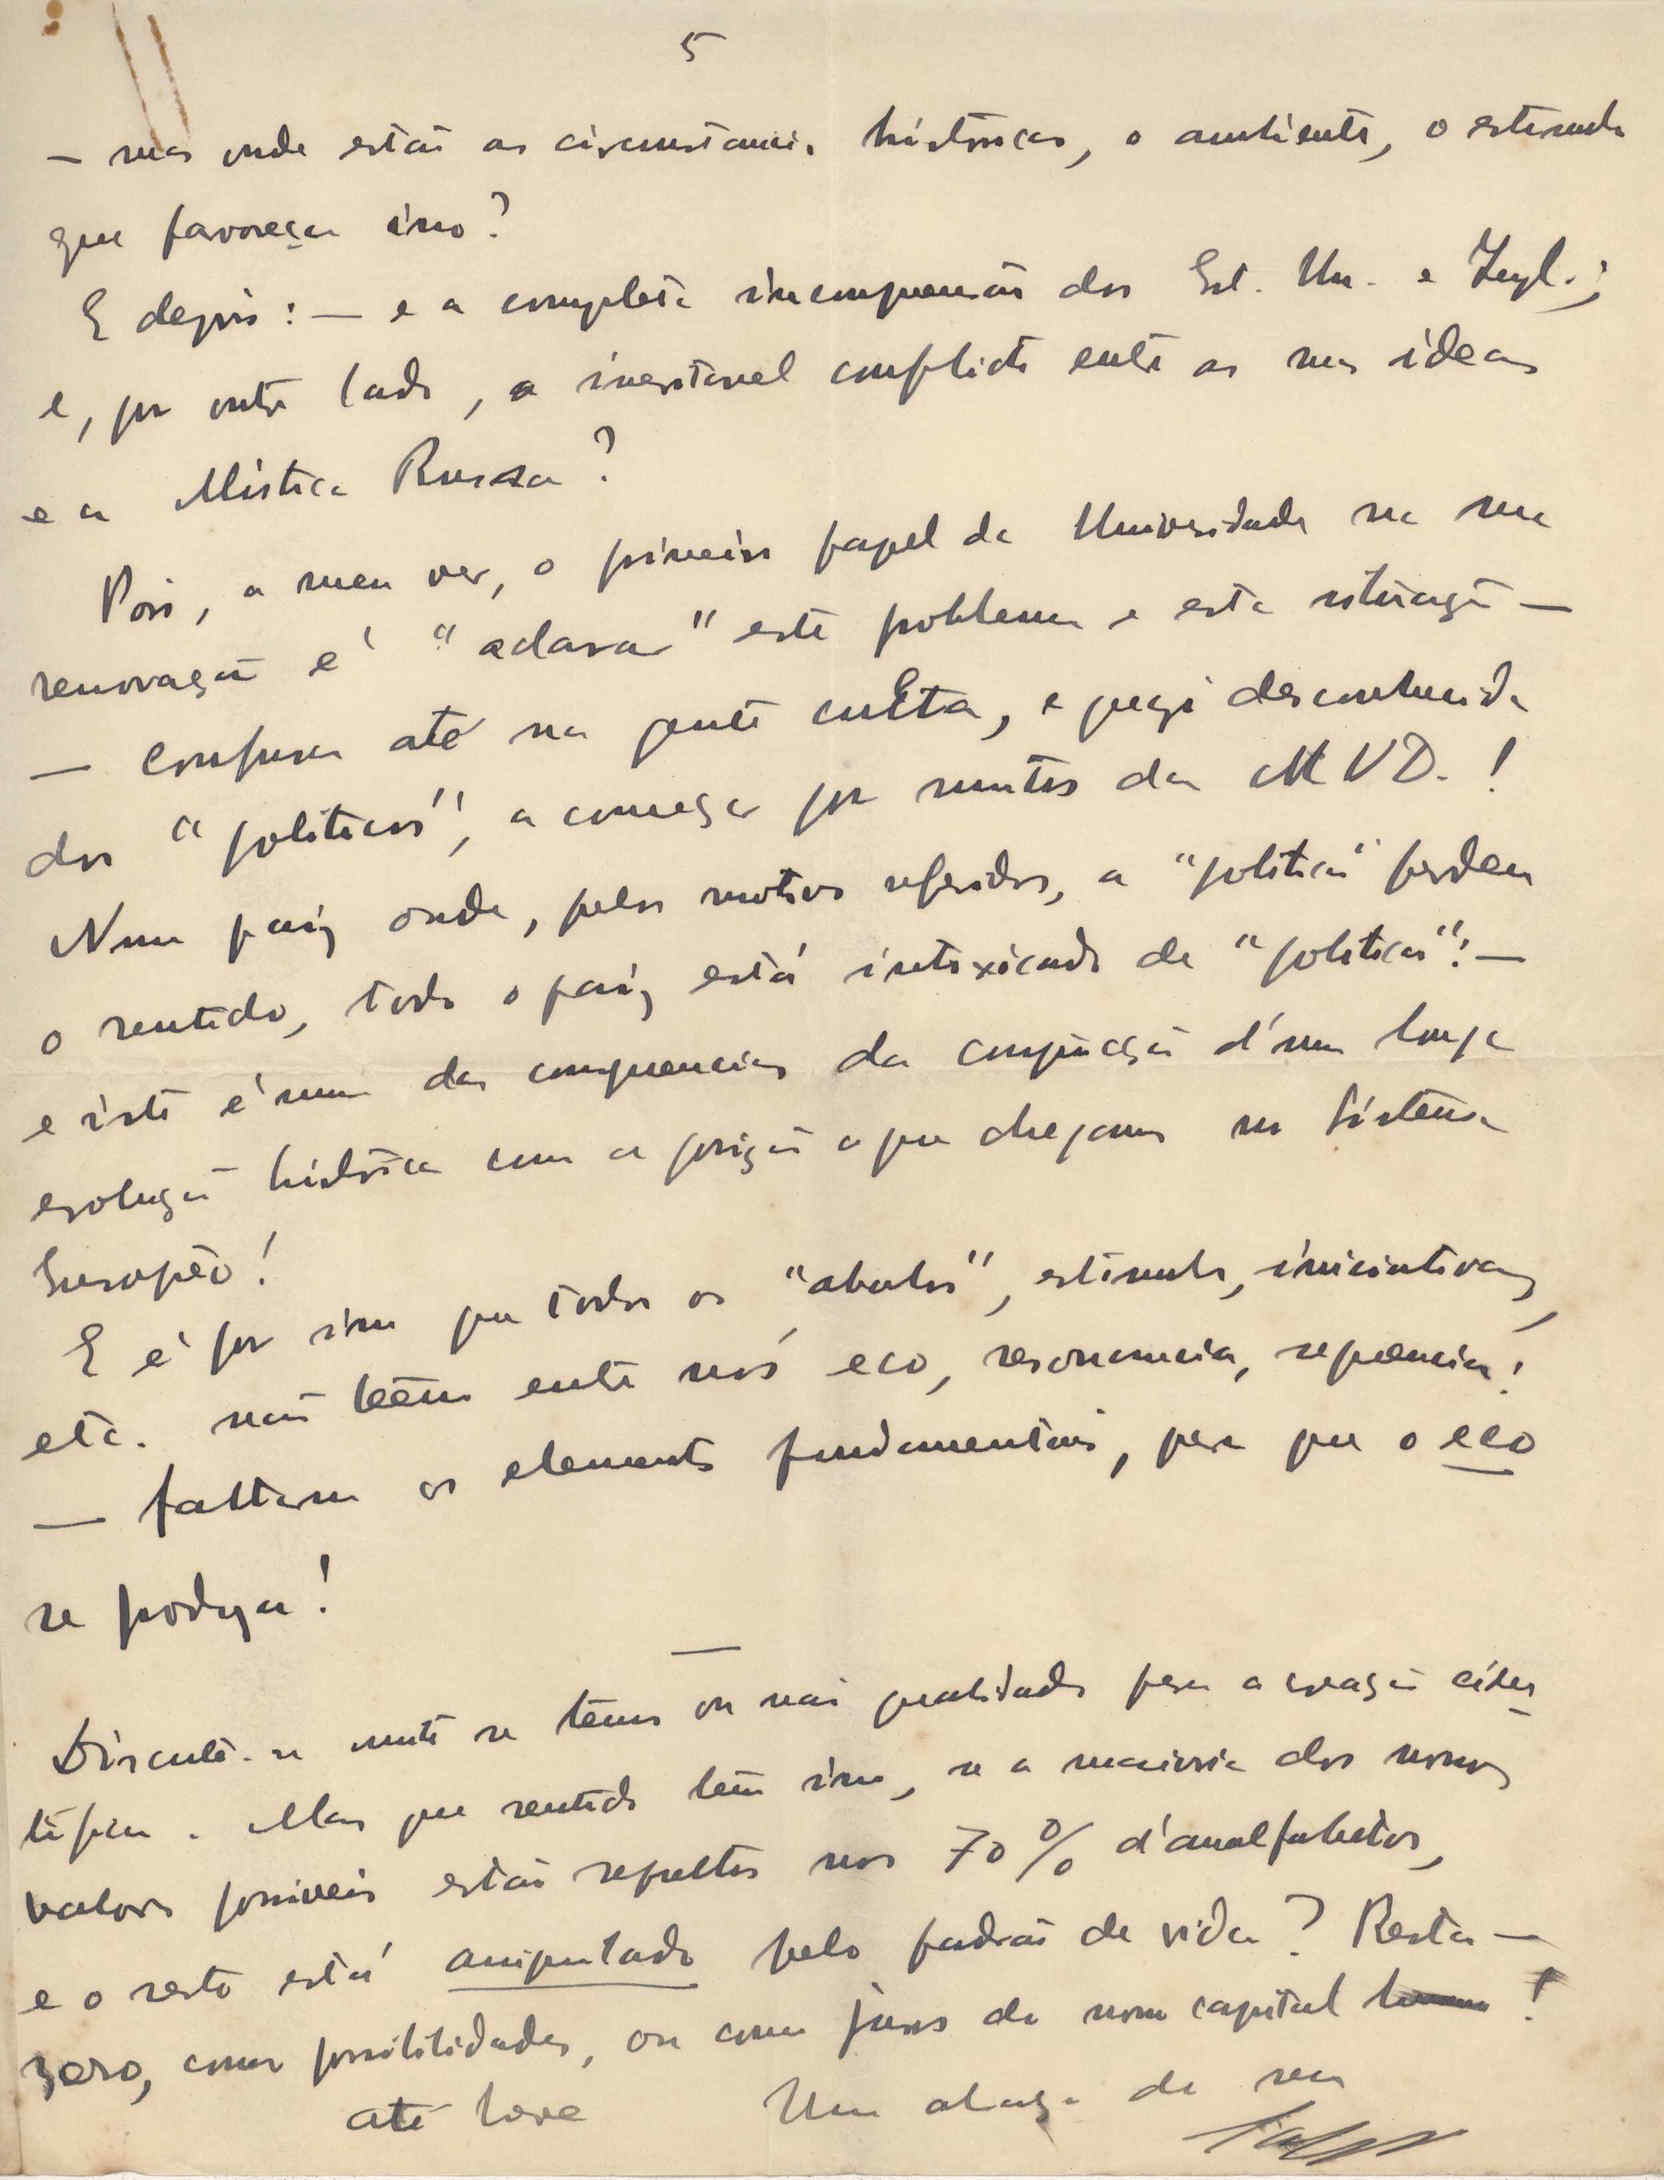 5
— mas onde estão as circunstancias históricas, o ambiente, o estimulo
que favoreça isso?
E depois: — e a completa incompreensão dos Est. Un. e Ingl.;
e, por outro lado, o inevitavel conflicto entre as suas ideas
e a Mistica Russa?
Pois, a meu ver, o primeiro papel da Universidade na sua
renovação é "aclarar" este problema e esta situação —
— confusa até na gente culta, e quasi desconhecida
dos "politicos", a começar por muitos da MVD.!
Num paiz onde, pelos motivos referidos, a "politica" perdeu
o sentido, todo o paiz está intoxicado de "politica": —
e isto é uma das consequencias da conjugação d'uma longa
evolução histórica com a posição a que chegamos no sistema
Europêo!
E é por isso que todos os "abalos", estimulos, iniciativas,
etc. não teem entre nós eco, resonancia, sequencia!
— faltam os elementos fundamentais, para que o eco
se produza!
—
Discute-se muito se temos ou não qualidades para a creação cien-
tifica. Mas que sentido tem isso, se a maioria dos nossos
valores possiveis estão sepultos nos 70% d'analfabetos,
e o resto está amputado pelo padrão de vida? Resta —
zero, como possibilidades, ou como juros do nosso capital !
até breve Um abraço do seu